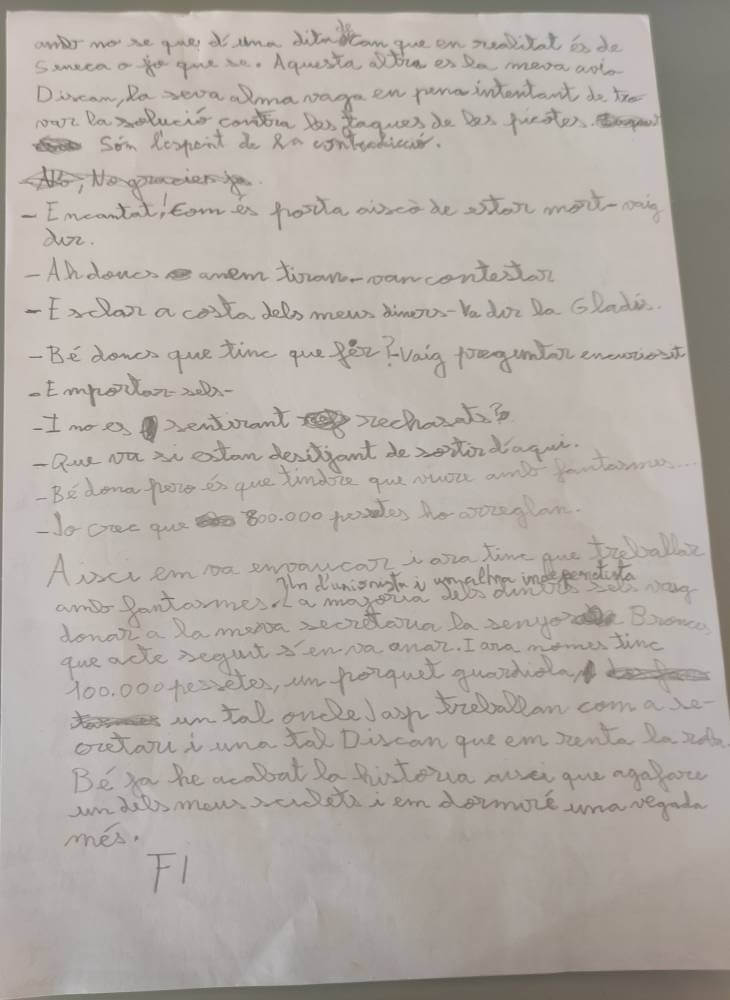 amb no se que, d'una dita de Kan que en realitat és de
Seneca o jo que se. Aquesta altra es la meva avia
Discan, la seva alma vaga en pena intentant de tro-
var la solució contra les taques de les picotes.
Són l'esperit de la contradicció.
No, No gracies ja.
- Encantat! Com és porta aiscò de estar mort - vaig
dir.
- Ah doncs anem tiran - van contestar
- Esclar a costa dels meus diners - Va dir la Gladis.
- Bé doncs que tinc que fer? - Vaig preguntar encuriosit
- Emportar-sels -
- I no es sentirant rechasats?
- Que va si estan desitjant de sortir d'aqui.
- Bé dona pero és que tindre que viure amb fantasmes...
- Jo crec que 800.000 pessetes ho arreglan.
Aisci em va envaucar i ara tinc que treballar
amb fantasmes. Un d'unionista i un alma independista
La majoria dels diners sels vaig
donar a la meva secretaria la senyora Bronca
que acte seguit s'en va anar. I ara nomes tinc
100.000 pessetes, un porquet guardiola,
un tal oncle Jasp treballan com a se-
cretari i una tal Discan que em renta la roba.
Bé ja he acabat la història aisci que agafare
un dels meus sciclets i em dormiré una vegada
més.
FI